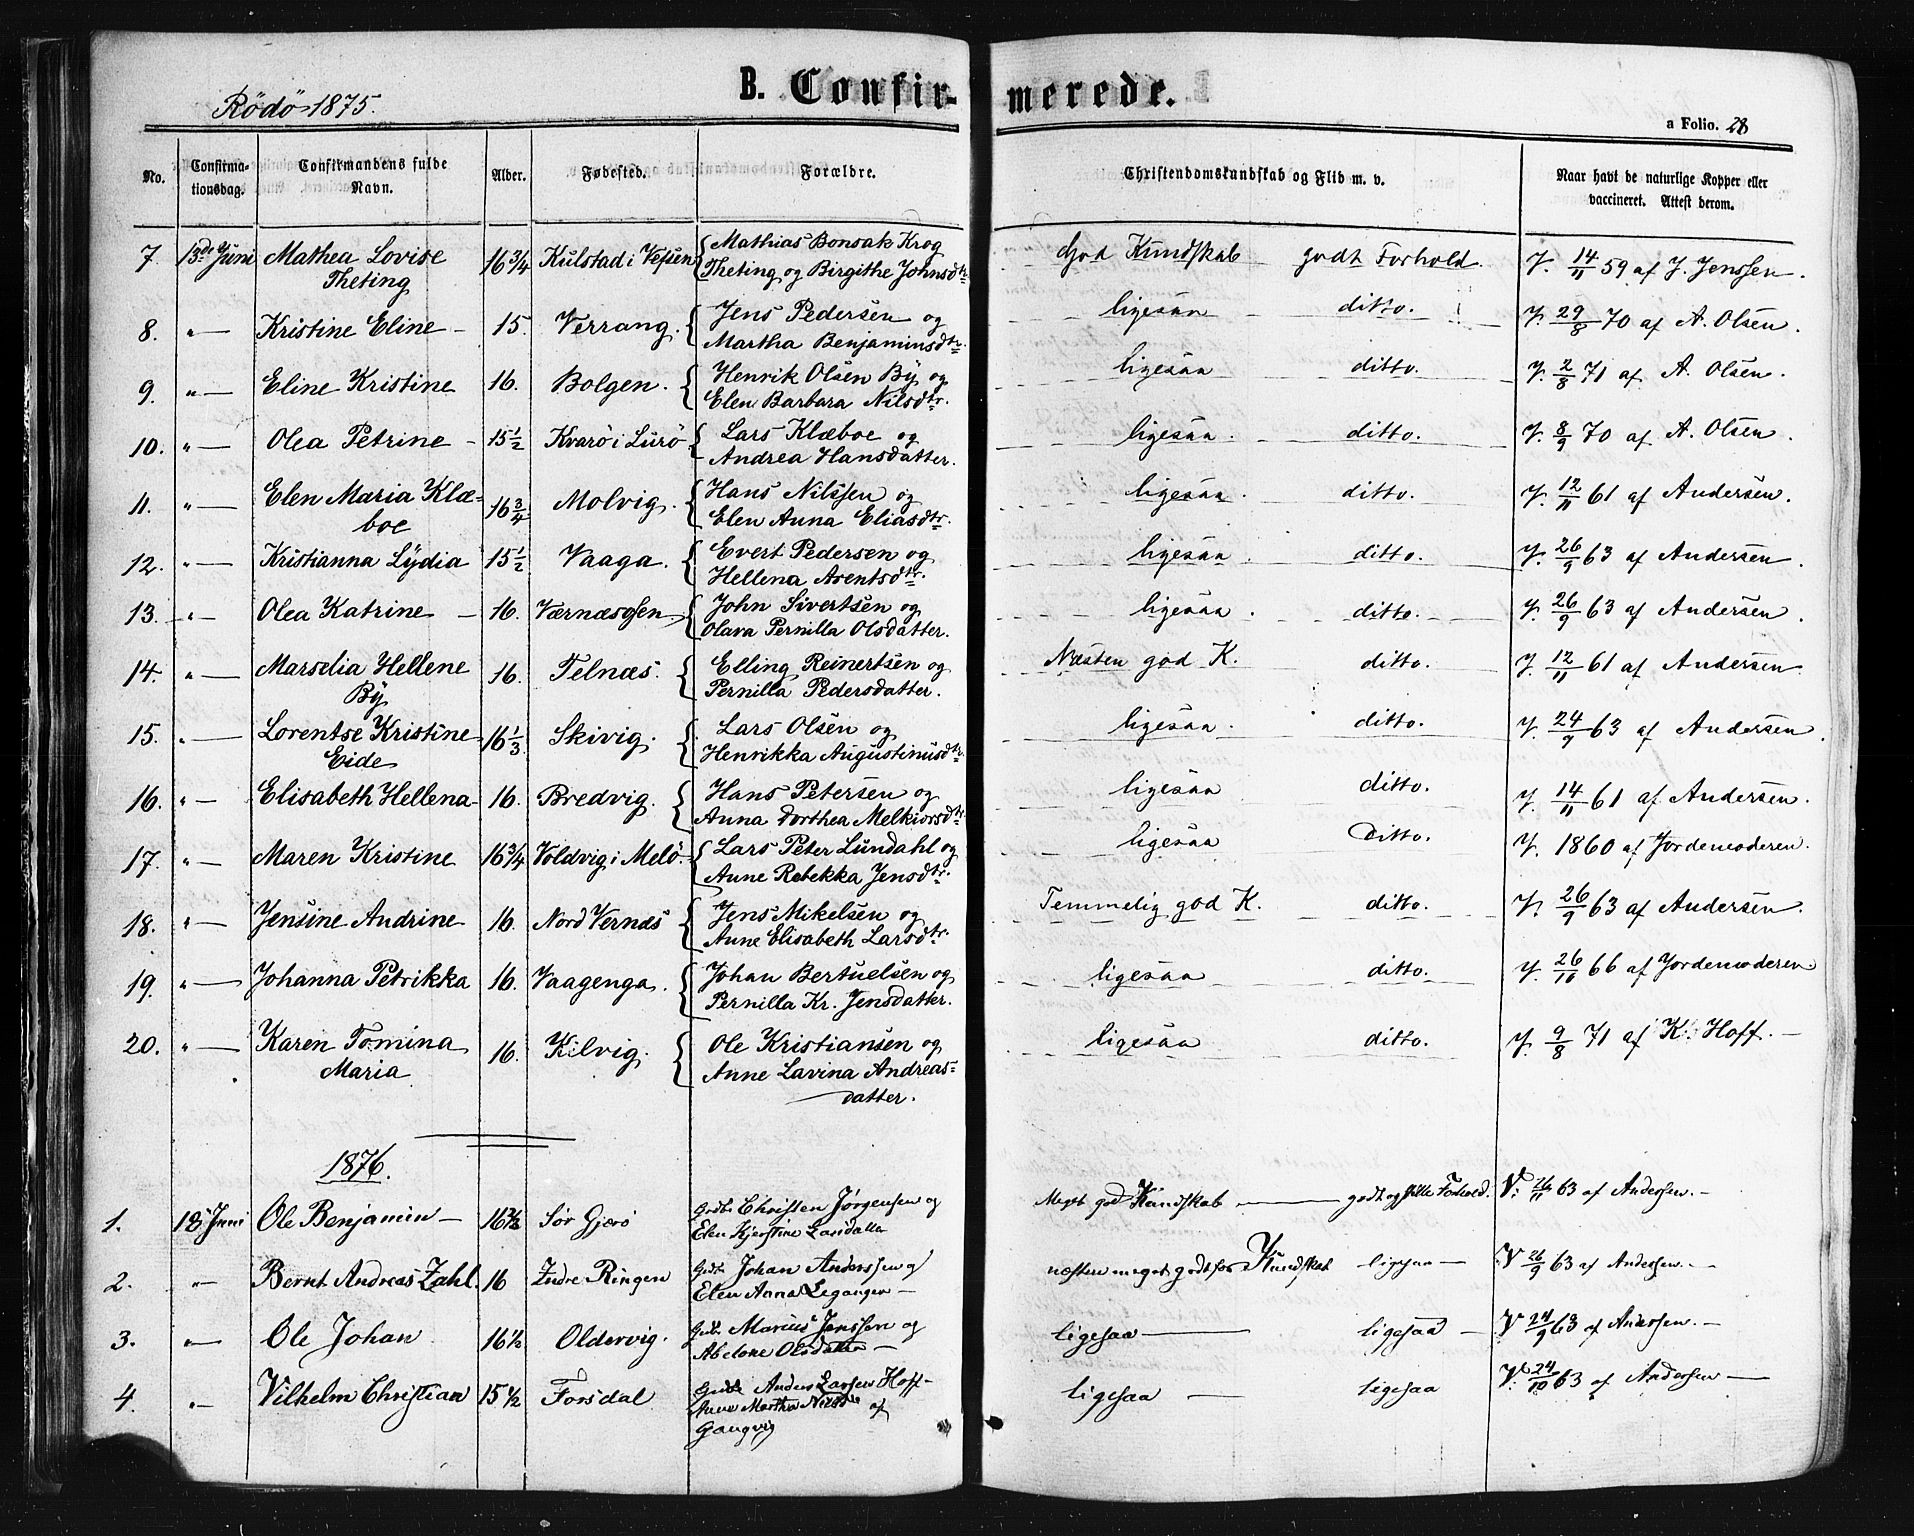 Rödö 1875.
B. Confirmerede.
a Folio. 28
No. Confirmationsdag. Confirmandens fulde Navn. Alder. Fødested. Forældre. Christendomskundskab og Flid m. v. Naar havt de naturlige Kopper eller vaccineret. Attest derom.
7. 13de Juni Mathea Lovise Theting 16 3/4 Kulstad i Vefsen { Mathias Bonsak Krog Theting og Birgithe Johnsdtr. God Kundskab godt Forhold. V. 14/11 59 af J. Jenssen.
8. "— Kristine Eline — 15. Verrang. { Jens Pedersen og Martha Benjaminsdtr. ligesaa ditto. V. 29/8 70 af A. Olsen.
9. "— Eline Kristine 16. Bolgen. { Henrik Olsen By og Elen Barbara Nilsdtr. ligesaa ditto. V. 2/8 71 af A. Olsen.
10. "— Olea Petrine — 15 1/2 Kvarö i Lurö { Lars Klæboe og Andrea Hansdatter. ligesaa. ditto. V. 8/9 70 af A. Olsen.
11. "— Elen Maria Klæ=boe 16 3/4 Molvig. { Hans Nilssen og Elen Anna Eliasdtr. ligesaa. ditto. V. 12/11 61 af Andersen.
12. "— Kristianna Lydia 15 1/2 Vaaga. { Evert Pedersen og Hellena Arentsdtr. ligesaa. ditto. V. 26/9 63 af Andersen.
13. "— Olea Katrine — 16. Værnæsosen { John Sivertsen og Olava Pernilla Olsdatter. ligesaa. ditto. V. 26/9 63 af Andersen.
14. "— Marselia Hellene By 16. Telnæs. { Elling Reinertsen og Pernilla Pedersdatter. Næsten god K. ditto. V. 12/11 61 af Andersen.
15. "— Lorentse Kristine Eide 16 1/3 Skivig. { Lars Olsen og Henrikka Augustinusdtr. ligesaa. ditto. V. 24/9 63 af Andersen.
16. "— Elisabeth Hellena 16. Bredvig. { Hans Petersen og Anna Dorthea Melkiorsdtr. ligesaa ditto. V. 14/11 61 af Andersen.
17. "— Maren Kristine 16 3/4 Voldvig i Melö. { Lars Peter Lundahl og Anne Rebekka Jensdtr. ligesaa Ditto. V. 1860 af Jordemoderen.
18. "— Jensine Andrine 16. Nord Vernæs { Jens Mikelsen og Anne Elisabeth Larsdtr. Temmelig god K. ditto. V. 26/9 63 af Andersen.
19. "— Johanna Petrikka 16. Vaagenga. { Johan Bertuelsen og Pernilla Kr. Jensdatter. ligesaa ditto. V. 26/10 66 af Jordemoderen
20. "— Karen Tomina Maria 16. Kilvig. { Ole Kristiansen og Anne Lavina Andreas=datter. ligesaa ditto. V. 9/8 71 af K. Hoff. —
1876.
1. 18 Juni Ole Benjamin — 16 Sör Gjerö Christen Jørgensen og Elen Kjerstine Meget god Kundskab — godt og stille Forhold. V. 26/11 63 af Andersen. —
2. "— Bernt Andreas Zahl. 16 Indre Ringen Johan Anderssen og Elen Anna — næsten meget god Kundskab ligesaa — V 26/9 63 af Andersen. —
3. "— Ole Johan 16 1/2 Oldervig. Marius Jenssen og Abelone Olsdatter — ligesaa — ligesaa — V 24/9 63 af Andersen. —
4. "— Vilhelm Christian 15 1/2 Forsdal Anders Larsen Hoff — Anne Martha af ligesaa — ligesaa V. 24/10 63 af Andersen —